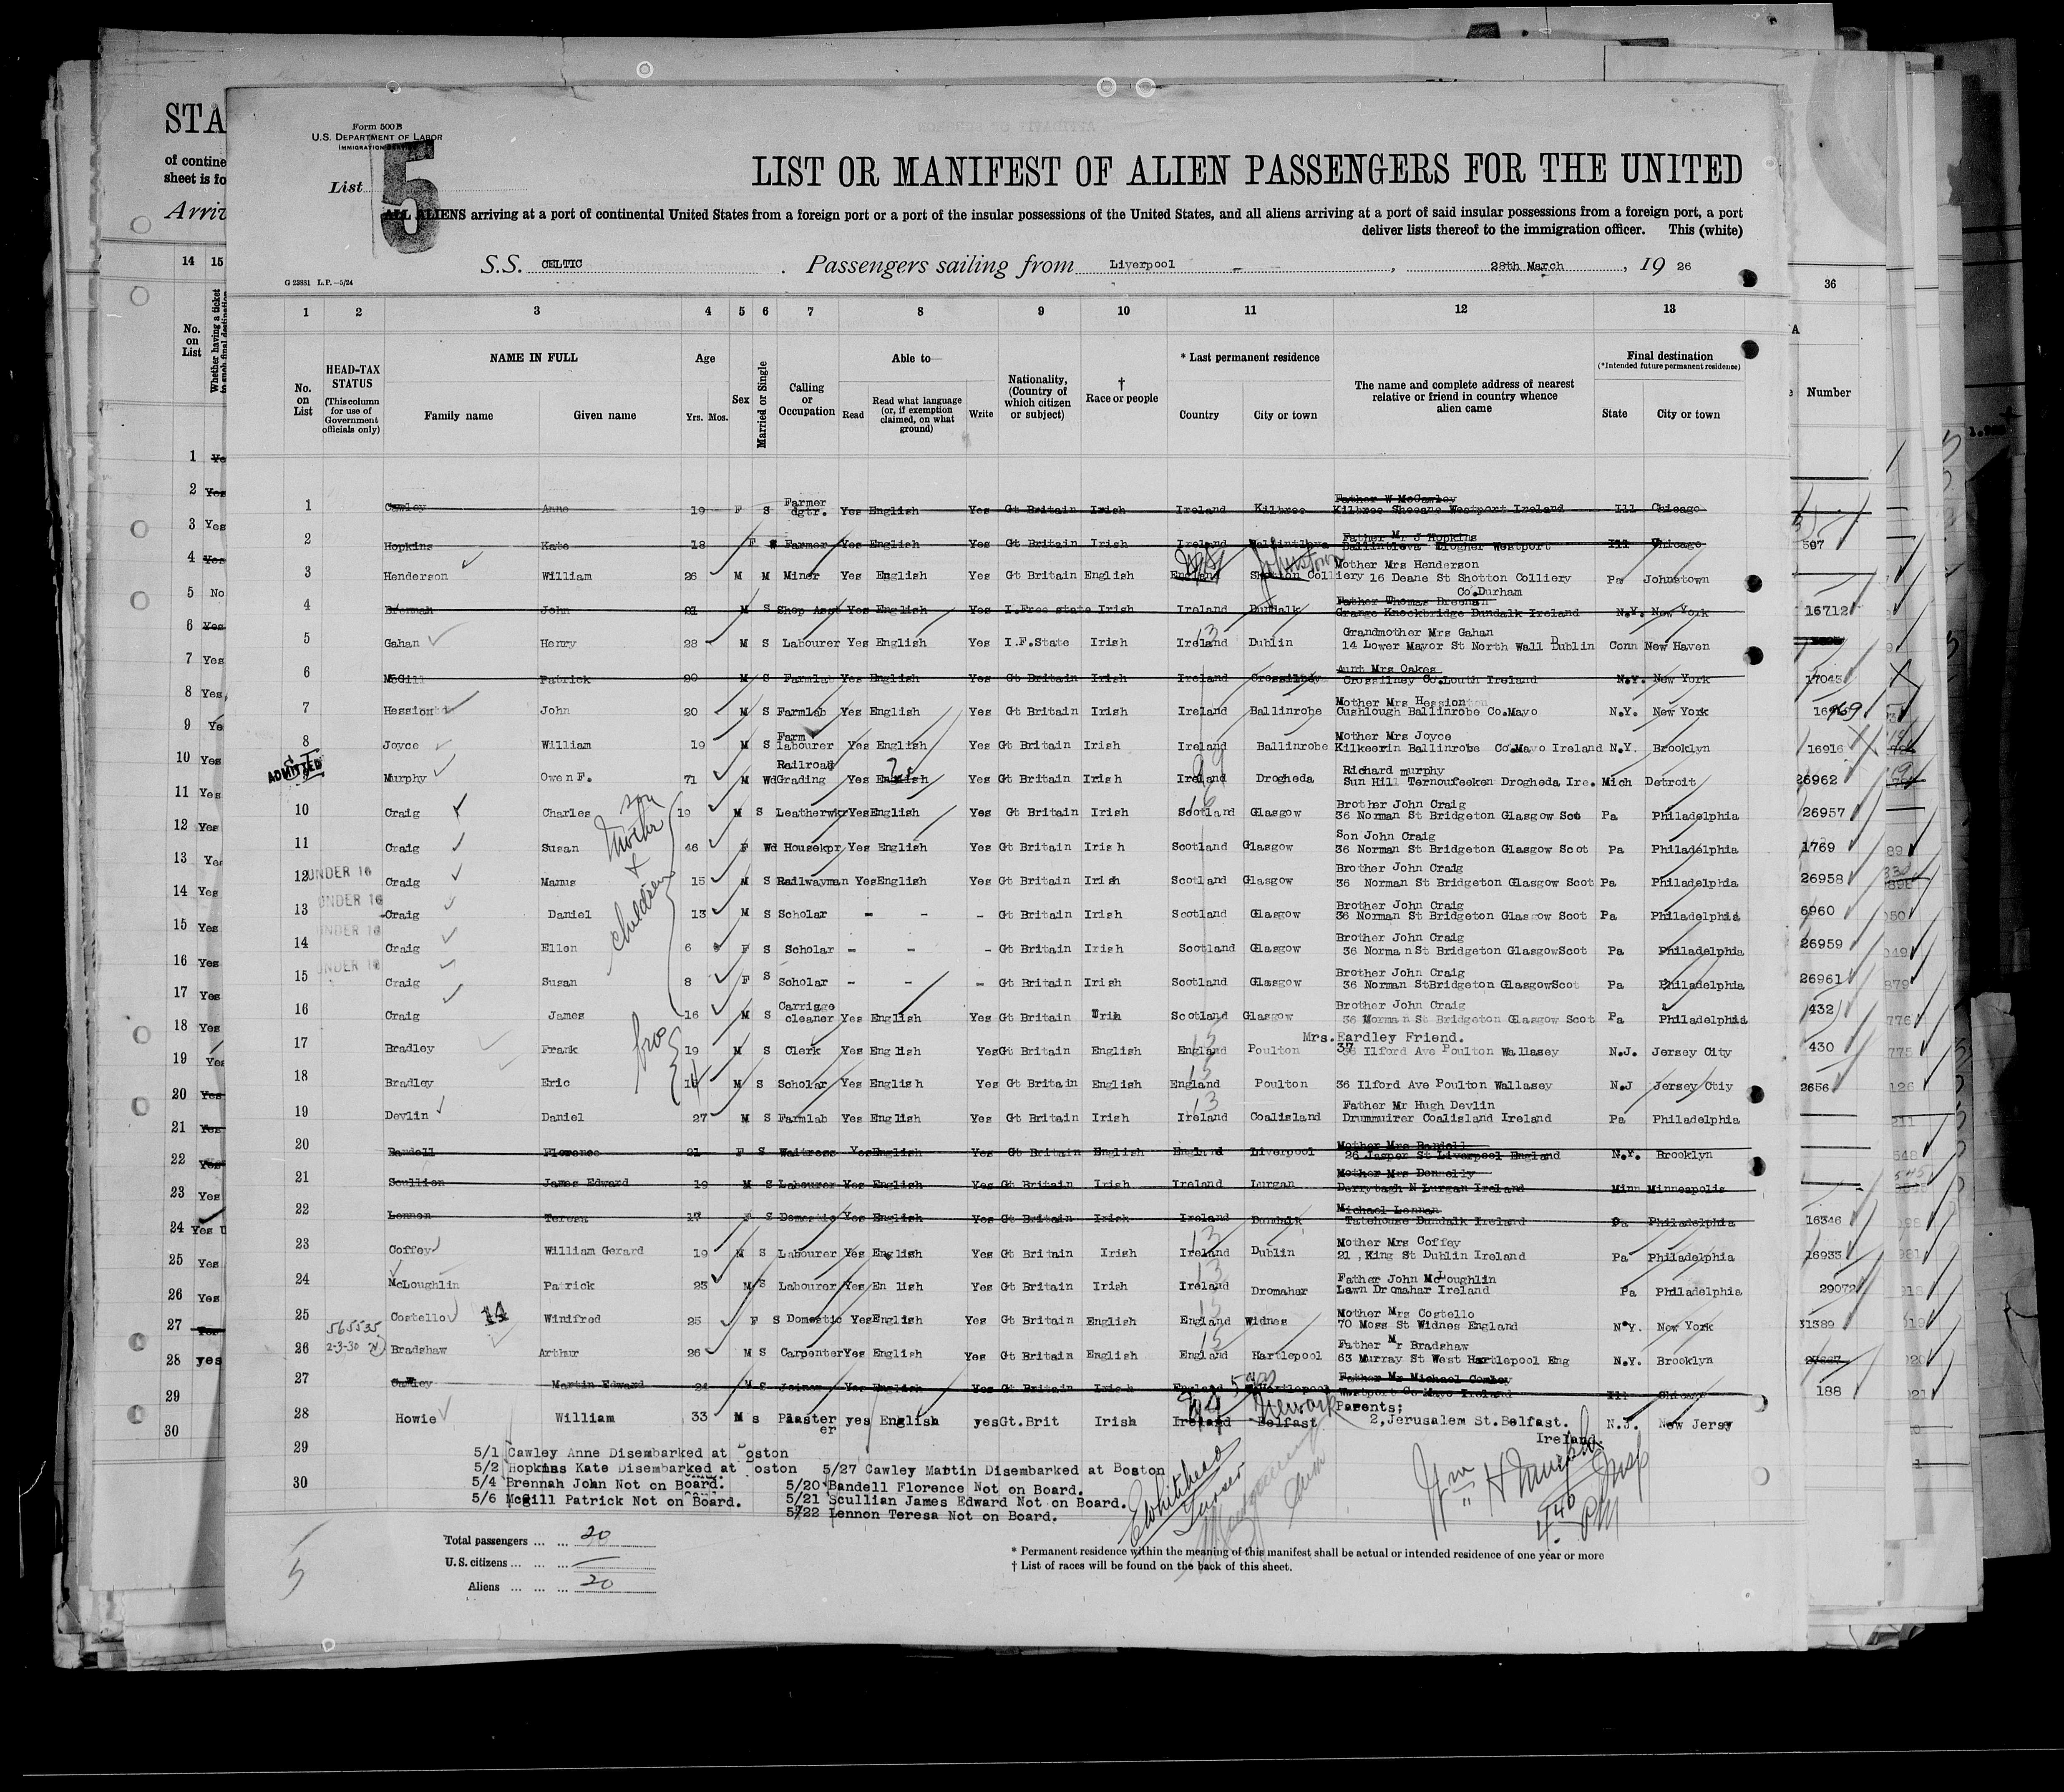 Form 500 B
U.S. DEPARTMENT OF LABOR
IMMIGRATION SERVICE
List 5
LIST OR MANIFEST OF ALIEN PASSENGERS FOR THE UNITED
ALL ALIENS arriving at a port of continental United States from a foreign port or a port of the insular possessions of the United States, and all aliens arriving at a port of said insular possessions from a foreign port, a port
deliver lists thereof to the immigration officer. This (white)
S.S. CELTIC . Passengers sailing from Liverpool , 28th March , 19 26
G 23881 L.P.—5/24
1 2 3 4 5 6 7 8 9 10 11 12 13
No. on List
HEAD-TAX STATUS (This column for use of Government officials only)
NAME IN FULL
Family name Given name
Age Yrs. Mos.
Sex
Married or Single
Calling or Occupation
Able to
Read Read what language (or, if exemption claimed, on what ground) Write
Nationality, (Country of which citizen or subject)
† Race or people
* Last permanent residence
Country City or town
The name and complete address of nearest relative or friend in country whence alien came
Final destination (*Intended future permanent residence)
State City or town
1 Cawley Anne 19 F S Farmer dgtr. Yes English Yes Gt Britain Irish Ireland Kilbree Father W McCawley Kilbree Sheeane Westport Ireland Ill Chicago
2 Hopkins Kate 18 F Farmer Yes English Yes Gt Britain Irish Ireland Ballintleva Father Mr J Hopkins Ballintleva Clogher Westport Ill Chicago
3 Henderson William 26 M M Miner Yes English Yes Gt Britain English England Shotton Colliery Mother Mrs Henderson 16 Deane St Shotton Colliery Co.Durham Pa Johnstown
4 Brennah John 21 M S Shop Asst Yes English Yes I.Free state Irish Ireland Dundalk Father Thomas Brennan Grange Knockbridge Dundalk Ireland N.Y. New York
5 Gahan Henry 28 M S Labourer Yes English Yes I.F.State Irish Ireland Dublin Grandmother Mrs Gahan 14 Lower Mayor St North Wall Dublin Conn New Haven
6 McGill Patrick 20 M S Farmlab Yes English Yes Gt Britain Irish Ireland Aunt Mrs Oakes Crossilney Co.Louth Ireland N.Y. New York
7 Hession John 20 M S Farmlab Yes English Yes Gt Britain Irish Ireland Ballinrobe Mother Mrs Hession Cushlough Ballinrobe Co.Mayo N.Y. New York
8 Joyce William 19 M S Farm labourer Yes English Yes Gt Britain Irish Ireland Ballinrobe Mother Mrs Joyce Kilkeerin Ballinrobe Co.Mayo Ireland N.Y. Brooklyn
ADMITTED Murphy Owen F. 71 M Wd Railroad Grading Yes English Yes Gt Britain Irish Ireland Drogheda Richard murphy Sun Hill Ternoufeeken Drogheda Ire. Mich Detroit
10 Craig Charles 19 M S Leatherwkr Yes English Yes Gt Britain Irish Scotland Glasgow Brother John Craig 36 Norman St Bridgeton Glasgow Sco Pa Philadelphia
son
Mother
+
children
11 Craig Susan 46 F Wd Housekpr Yes English Yes Gt Britain Irish Scotland Glasgow Son John Craig 36 Norman St Bridgeton Glasgow Scot Pa Philadelphia
12 UNDER 16 Craig Manus 15 M S Railwayman Yes English Yes Gt Britain Irish Scotland Glasgow Brother John Craig 36 Norman St Bridgeton Glasgow Scot Pa Philadelphia
13 UNDER 16 Craig Daniel 13 M S Scholar - - - Gt Britain Irish Scotland Glasgow Brother John Craig 36 Norman St Bridgeton Glasgow Scot Pa Philadelphia
14 UNDER 16 Craig Ellen 6 F S Scholar - - - Gt Britain Irish Scotland Glasgow Brother John Craig 36 Norman St Bridgeton GlasgowScot Pa Philadelphia
15 UNDER 16 Craig Susan 8 F S Scholar - - - Gt Britain Irish Scotland Glasgow Brother John Craig 36 Norman StBridgeton GlasgowScot Pa Philadelphia
16 Craig James 16 M S Carriage cleaner Yes English Yes Gt Britain Irih Scotland Glasgow Brother John Craig 36 Norman St Bridgeton Glasgow Scot Pa Philadelphia
bro
17 Bradley Frank 19 M S Clerk Yes English Yes Gt Britain English England Poulton Mrs. Eardley Friend. 37 Ilford Ave Poulton Wallasey N.J. Jersey City
18 Bradley Eric M S Scholar Yes English Yes Gt Britain English England Poulton 36 Ilford Ave Poulton Wallasey N.J Jersey Ctiy
19 Devlin Daniel 27 M S Farmlab Yes English Yes Gt Britain Irish Ireland Coalisland Father Mr Hugh Devlin Drummuirer Coalisland Ireland Pa Philadelphia
20 Bandell Florence 21 F S Waitress Yes English Yes Gt Britain English England Liverpool Mother Mrs Bandell 26 Jasper St Liverpool England N.Y. Brooklyn
21 Scullion James Edward 19 M S Labourer Yes English Yes Gt Britain Irish Ireland Lurgan Mother Mrs Donnelly Derrytagh N Lurgan Ireland Minn Minneapolis
22 Lennon Teresa 17 F S Domestic Yes English Yes Gt Britain Irish Ireland Dundalk Michael Lennan Tatehouse Dundalk Ireland Pa Philadelphia
23 Coffey William Gerard 19 M S Labourer Yes English Yes Gt Britain Irish Ireland Dublin Mother Mrs Coffey 21 ,King St Dublin Ireland Pa Philadelphia
24 McLoughlin Patrick 23 M S Labourer Yes En lish Yes Gt Britain Irish Ireland Dromahar Father John McLoughlin Lawn Dromahar Ireland Pa Philadelphia
25 Costello 14 Winifred 25 F S Domestic Yes English Yes Gt Britain English England Widnes Mother Mrs Costello 70 Moss St Widnes England N.Y. New York
565535
2-3-30
26 Bradshaw Arthur 26 M S Carpenter Yes English Yes Gt Britain English England Hartlepool Father Mr Bradshaw 63 Murray St West Hartlepool Eng N.Y. Brooklyn
27 Cawley Martin Edward 24 M S Joiner Yes English Yes Gt Britain Irish England Hartlepool Father Mr Michael Cawley Westport Co Mayo Ireland Ill Chicago
28 Howie William 33 M s Plasterer yes English yes Gt.Brit Irish Ireland Belfast Newark Parents; 2,Jerusalem St.Belfast. Ireland. N.J. New Jersy
29
30
5/1 Cawley Anne Disembarked at Boston
5/2 Hopkins Kate Disembarked at Boston 5/27 Cawley Martin Disembarked at Boston
5/4 Brennah John Not on Board. 5/20 Bandell Florence Not on Board.
5/6 McGill Patrick Not on Board. 5/21 Scullian James Edward Not on Board.
5/22 Lennon Teresa Not on Board.
E Whitehead
Purser
Total passengers ... ... 20
U.S. citizens ... ... —
Aliens ... ... ... 20
* Permanent residence within the meaning of this manifest shall be actual or intended residence of one year or more
† List of races will be found on the back of this sheet.
STA
of contine
sheet is fo
Arriv
14 15
No. on List
Whether having a ticket
36
Number
597
16712
17045
16916
26962
26957
1769
26958
6960
26959
26961
432
430
2656
16346
16933
29072
31389
27667
188